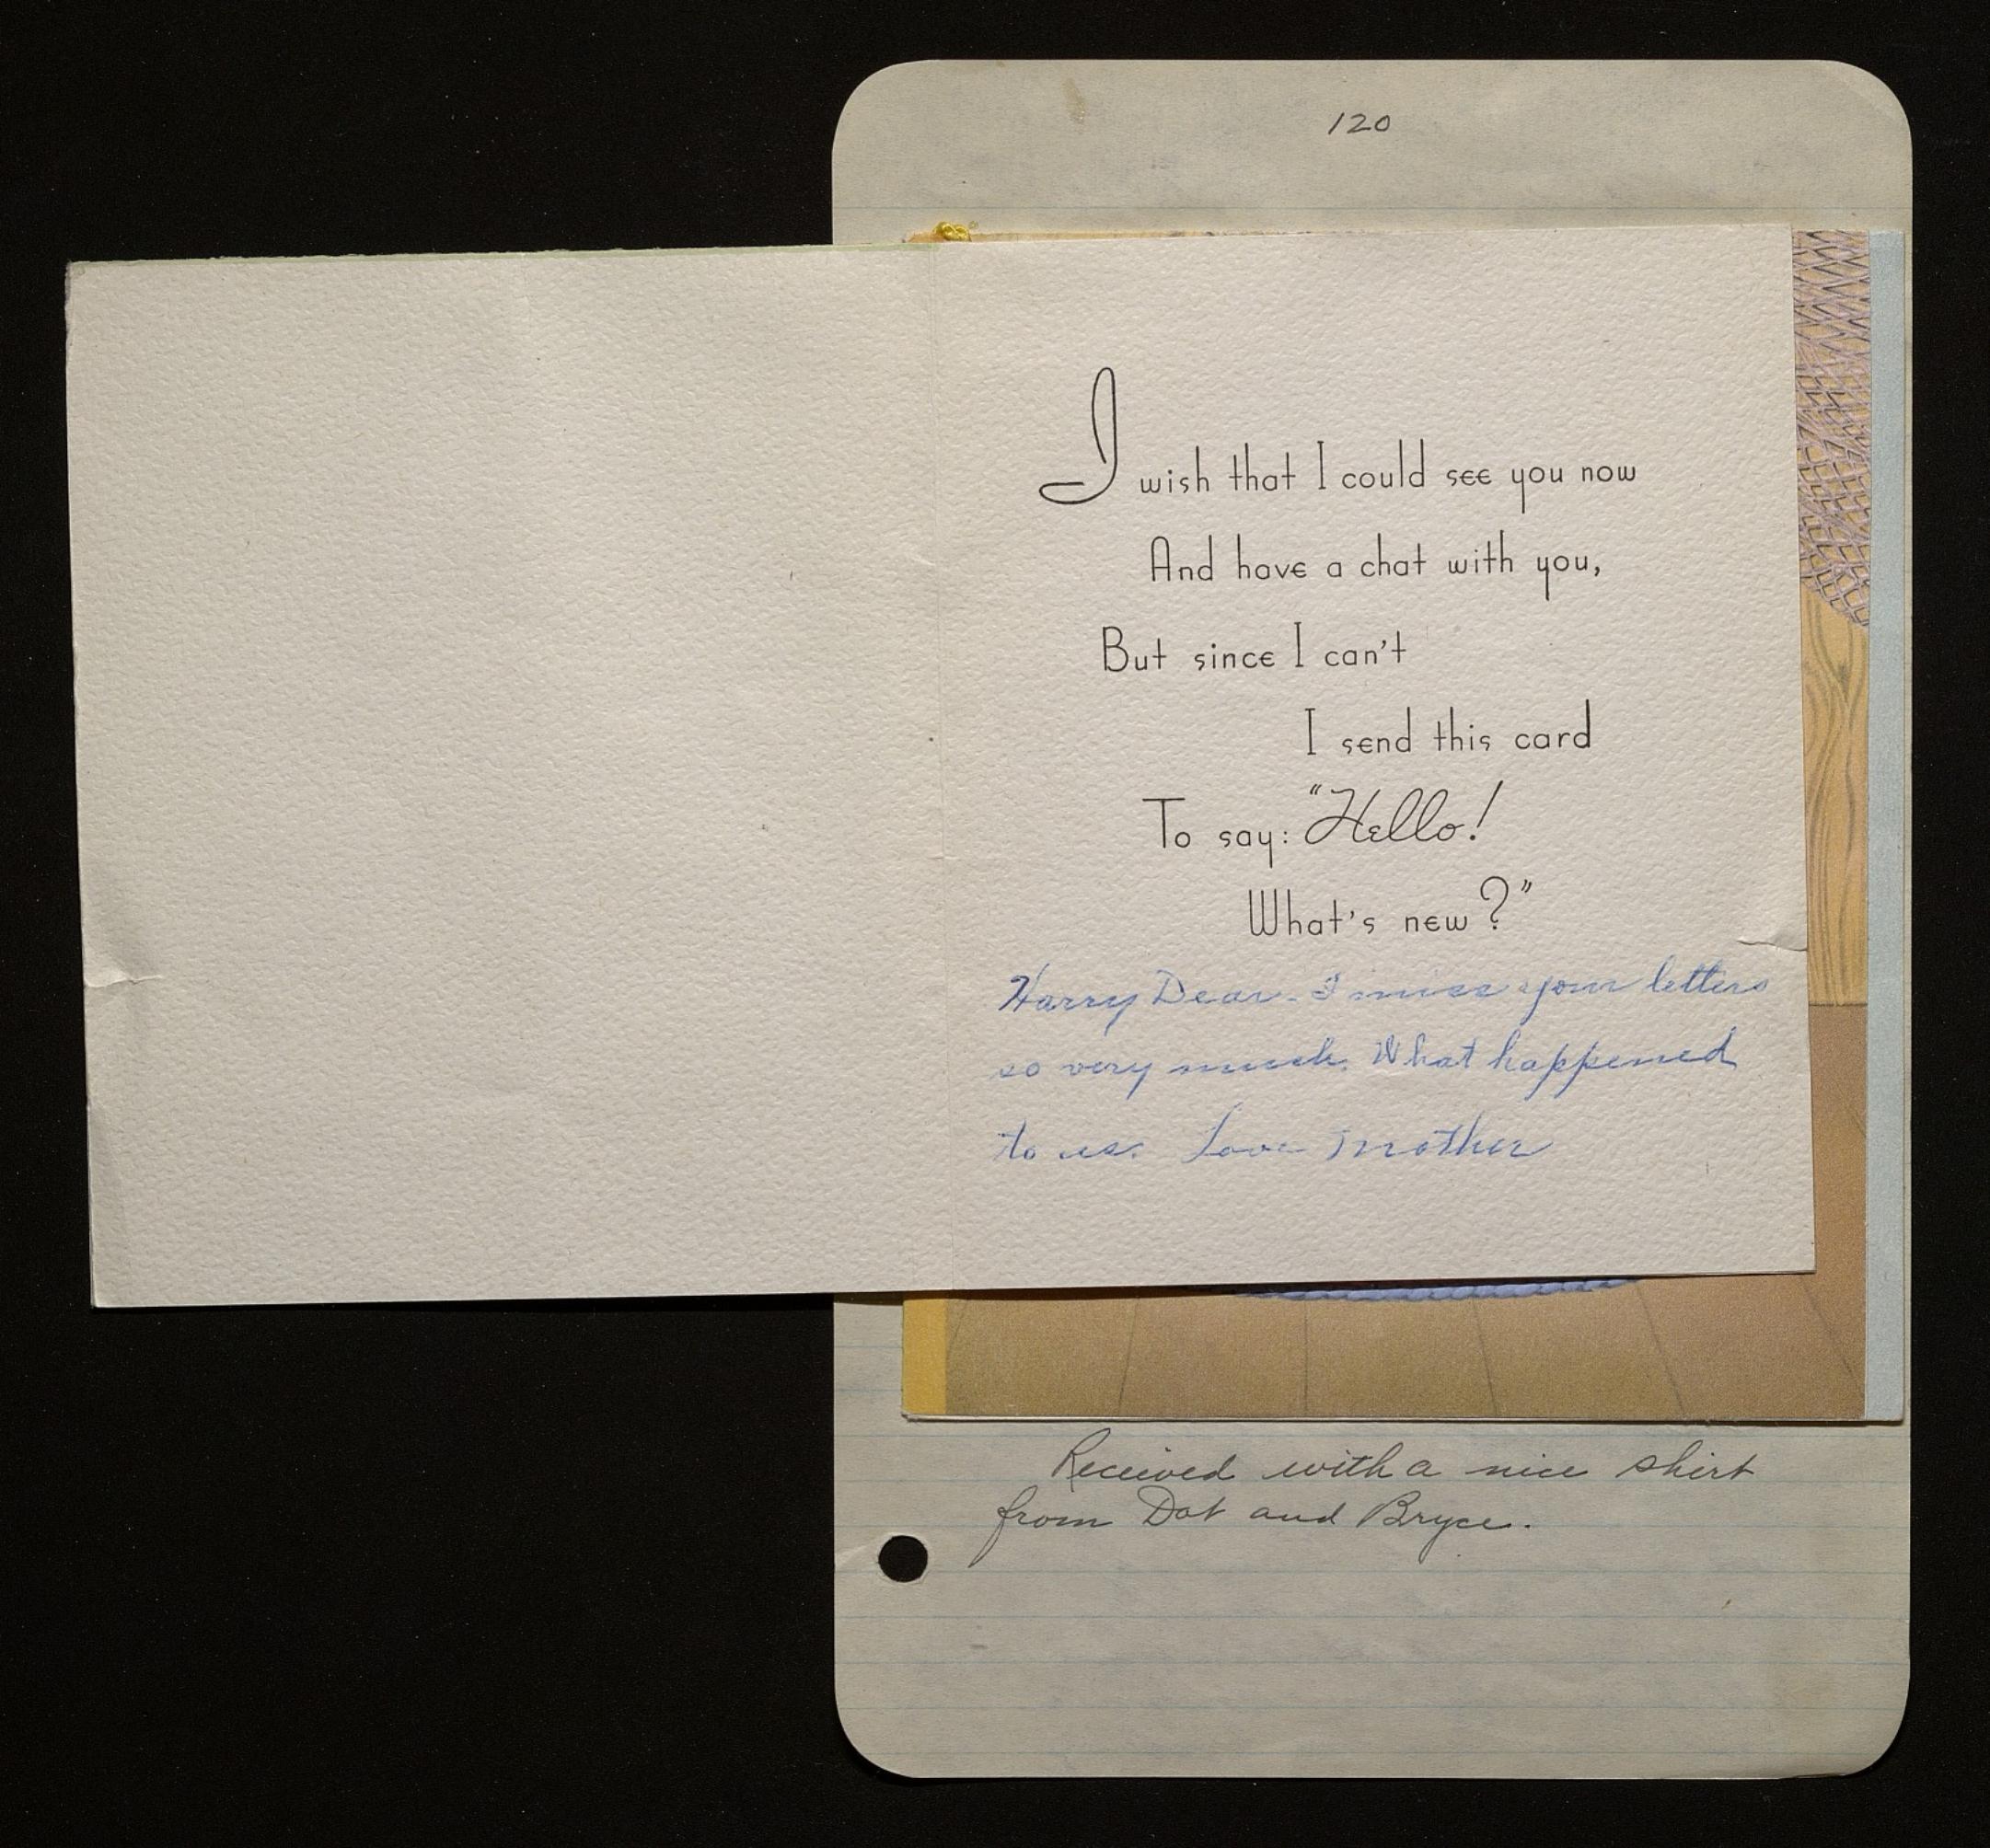 120
I wish that I could see you now
And have a chat with you,
But since I can't
I send this card
To say: "Hello!
What's new?"
Harry Dear - I miss your letters
so very much. What happened
to us. Love Mother
Received with a nice shirt
from Dot and Bryce.